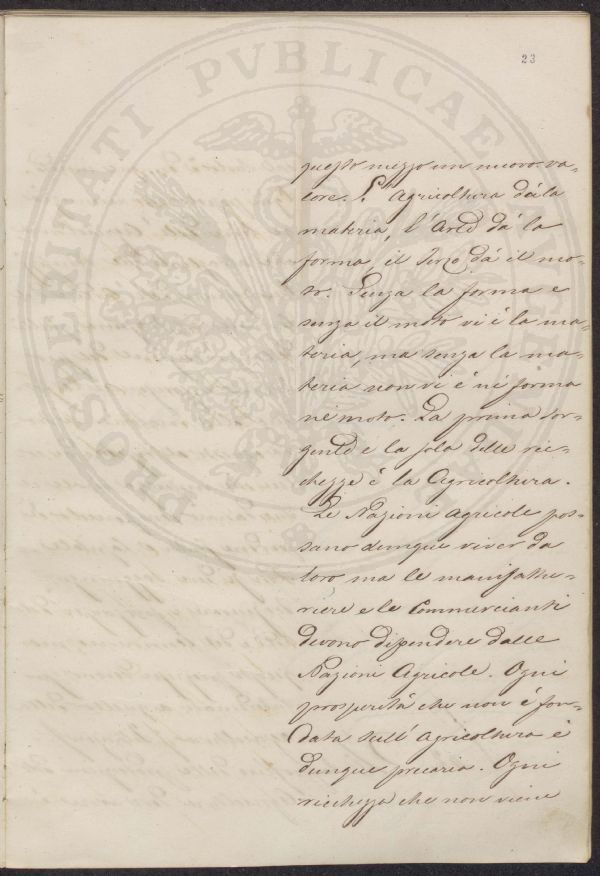 23
PROSPERITATI PVBLICAE
questo mezzo un nuovo va-
lore. L'Agricoltura dà la
materia, l'Arte dà la
forma, il Terzo dà il mo-
to. Senza la forma e
senza il moto vi è la ma-
teria, ma senza la ma-
teria non vi è nè forma
nè moto. La prima sor-
gente e la sola delle ric-
chezze è la Agricoltura.
Le Nazioni Agricole pos-
sano dunque viver da
loro ma le manifattu-
riere e le Commercianti
devono dipendere dalle
Nazioni Agricole. Ogni
prosperità che non è fon-
data sull'Agricoltura è
dunque precaria. Ogni
ricchezza che non viene